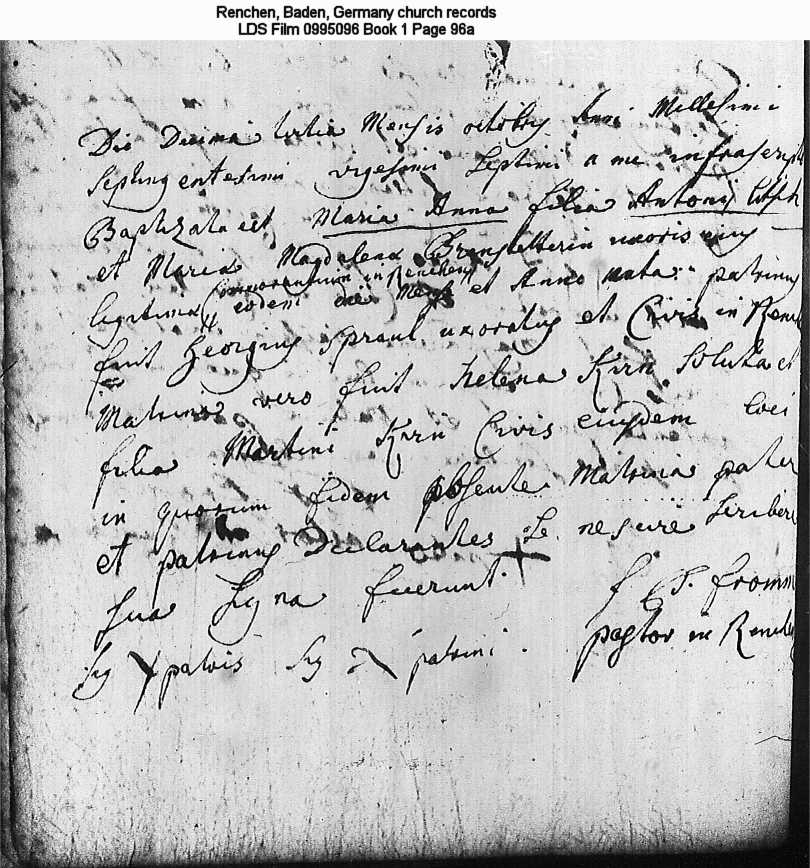 Renchen, Baden, Germany church records
LDS Film 0995096 Book 1 Page 96a
Die Decima tertia Mensis octobris Anni Millesimi
Septingentesimi vigesimi Septimi a me infrascript
Baptizata est Maria Anna filia Antonij
et Maria Magdalena uxoris eius
legitima
(commorantium in Renchen)
eodem die Mense et Anno nata: patrinus
fuit Georgius uxoratus et Civis in Renc
Matrina vero fuit Helena Kirn Soluta et
filia Martini Kirn Civis eiusdem loci
in quorum fidem absente Matrina pater
et patrinus Declarantes Se nescire scribere
sua Signa fecerunt. +
Sig patris Sig patrini.
fromm
pastor in Renchen